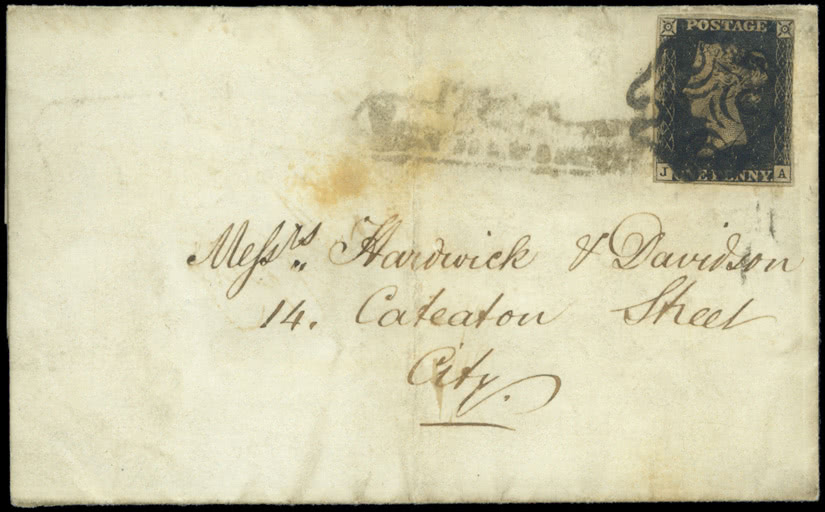 POSTAGE
J ONE PENNY A
Messrs Hardwick & Davidson
14. Cateaton Street
City.